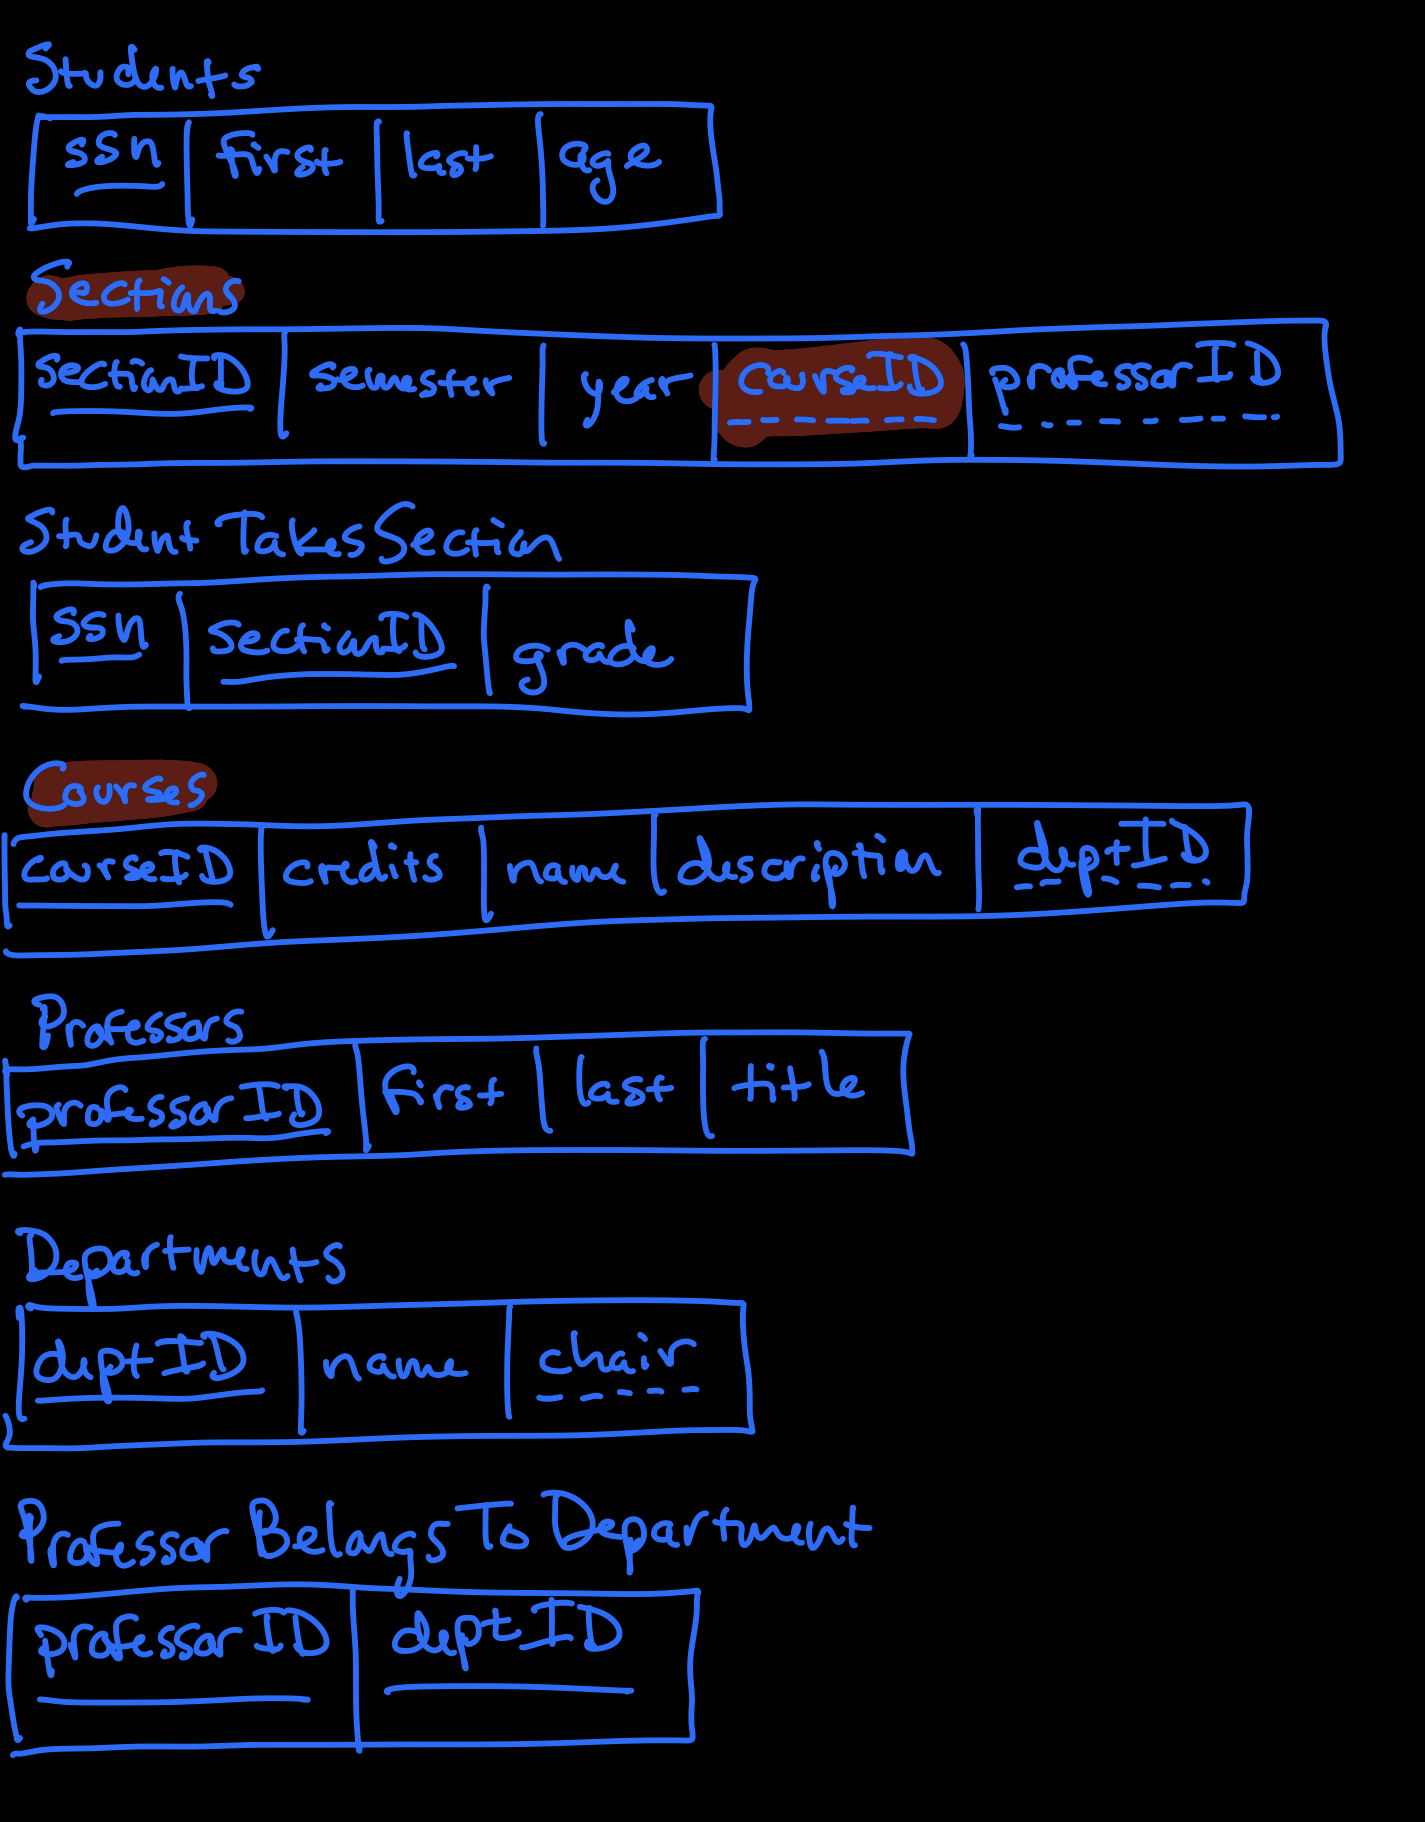 Students
ssn first last age
Sections
sectionID semester year courseID professorID
Student Takes Section
ssn sectionID grade
Courses
courseID credits name description deptID
Professors
professorID first last title
Departments
deptID name chair
Professor Belongs To Department
professorID deptID